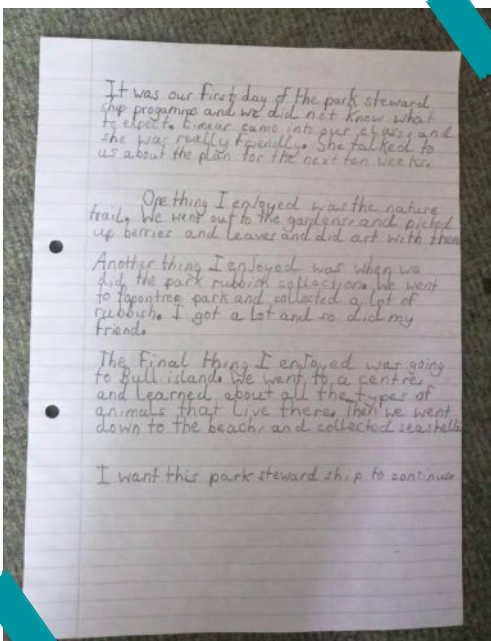 It was our first day of the park steward
ship progamme and we did not know what
to expect. Eimear came into our class, and
she was really friendly. She talked to
us about the plan for the next ten weeks.
One thing I enjoyed was the nature
trail. We went out to the gardens and picked
up berries and leaves and did art with them
Another thing I enjoyed was when we
did the park rubbish collection. We went
to park and collected a lot of
rubbish. I got a lot and so did my
friend.
The Final thing I enjoyed was going
to Bull island. We went to a centre,
and learned about all the types of
animals that live there. Then we went
down to the beach, and collected seashells
I want this park steward ship to continue